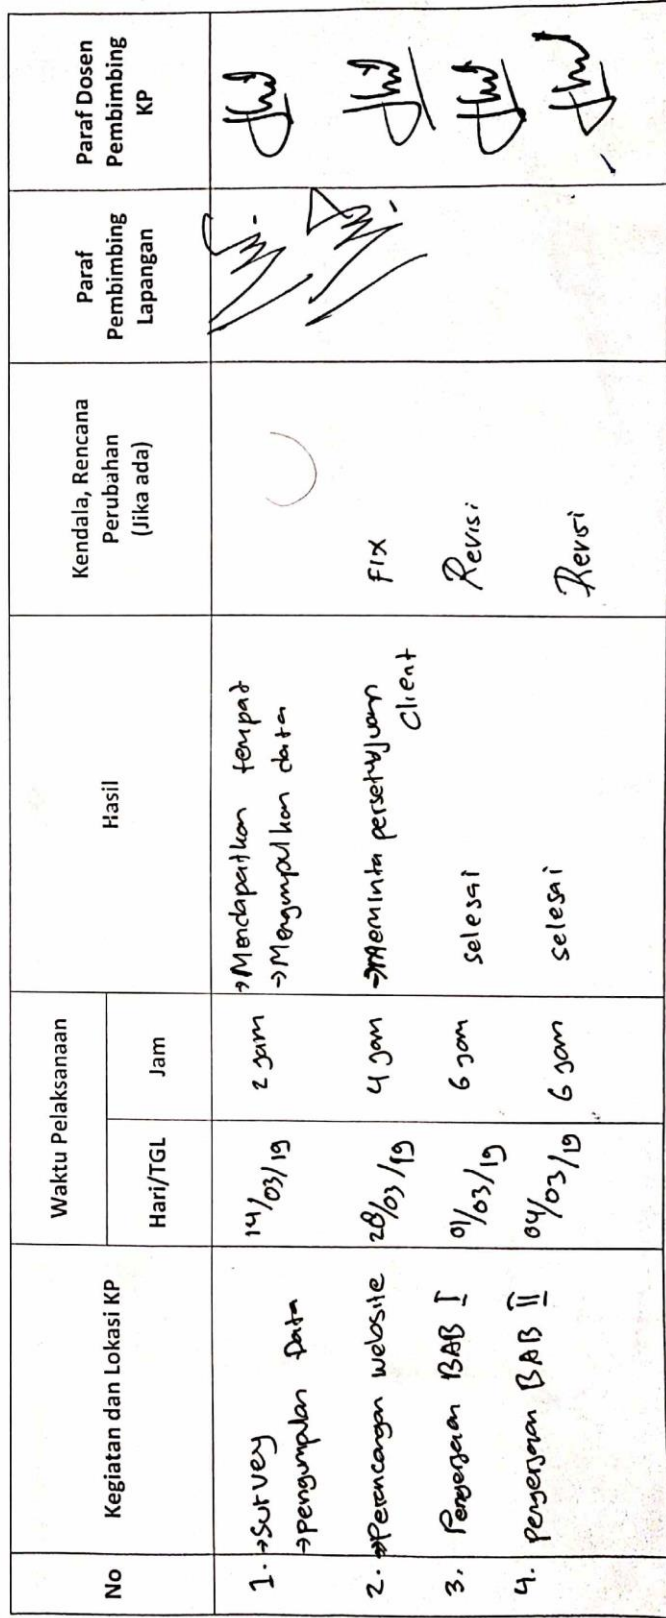 No
Kegiatan dan Lokasi KP
Waktu Pelaksanaan
Hari/TGL
Jam
Hasil
Kendala, Rencana
Perubahan
(Jika ada)
Paraf
Pembimbing
Lapangan
Paraf Dosen
Pembimbing
KP
1. →Survey
→pengumpulan Data
14/03/19
2 jam
→Mendapatkan tempat
→Mengumpulkan data
2. →Perancangan website
28/03/19
4 jam
→Meminta persetujuan
Client
FIX
3. Pengerjaan BAB I
01/03/19
6 jam
selesai
Revisi
4. pengerjaan BAB II
04/03/19
6 jam
selesai
Revisi